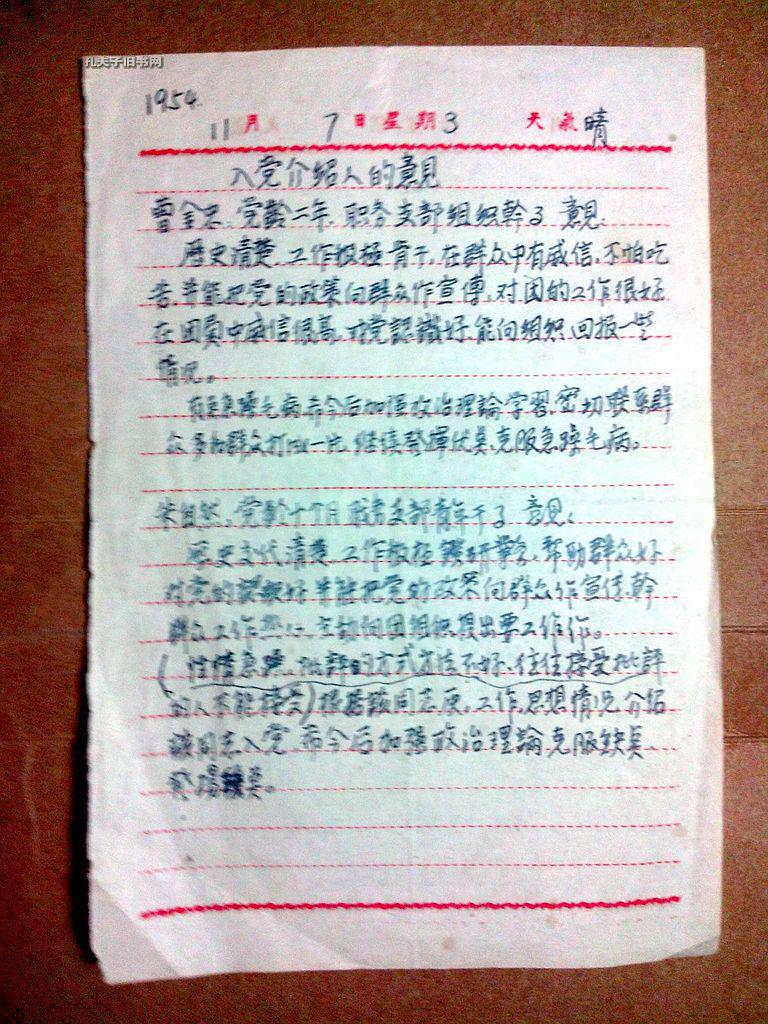 孔夫子旧书网
1954.
11月 7日星期3 天氣晴
入党介绍人的意見
曹全忠、党齡二年、职务支部组织幹了 意見、
歷史清楚、工作积极肯干、在群众中有威信、不怕吃
苦、并能把党的政策向群众作宣傳、对团的工作很好、
在团員中威信很高、对党認識好、能向组织回报一些
情况。
有点急躁毛病、希今后加强政治理論学習、密切联系群
众、多和群众打成一片、继续發揮优点、克服急躁毛病。
党齡十个月 职务支部青年干了 意見、
歷史交代清楚、工作积极 鑽研業务、帮助群众好
对党的認識好、并能把党的政策向群众作宣传、幹
群众工作热心、主动向团组织提出要工作作。
(性情急躁、批評的方式方法不好、往往接受批評
的人不能接受)根据該同志历、工作、思想情况介绍
該同志入党、希今后加强政治理論克服缺点、
發揚点。